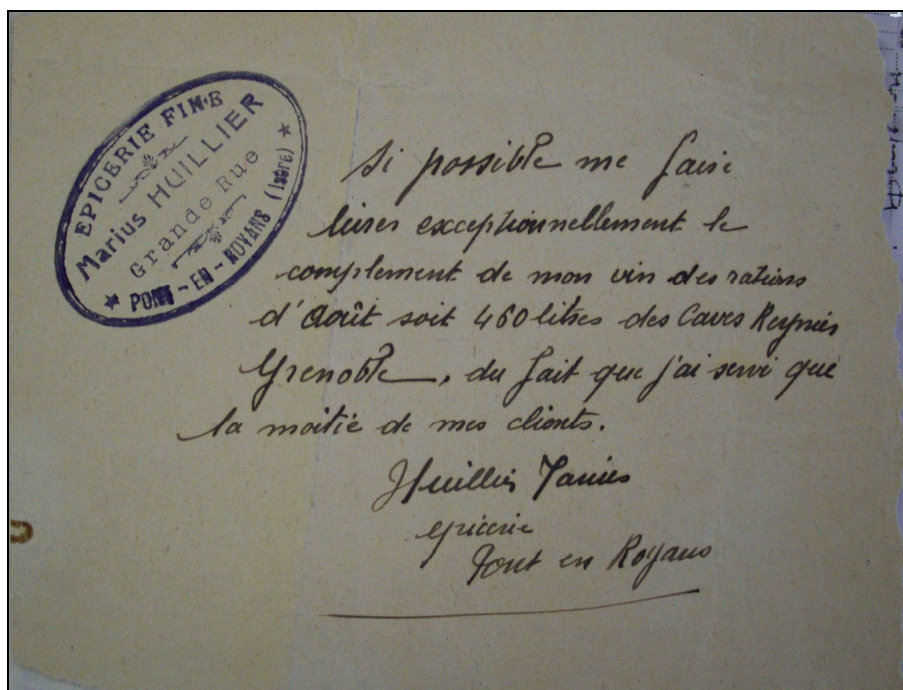 EPICERIE FINE
Marius HUILLIER
Grande Rue
★ PONT-EN-ROYANS (Isère) ★
Si possible me faire
livrer exceptionnellement le
complement de mon vin des rations
d'Août soit 460 litres des Caves Reynies
Grenoble, du fait que j'ai servi que
la moitié de mes clients.
Huillier
epicerie
Pont en Royans